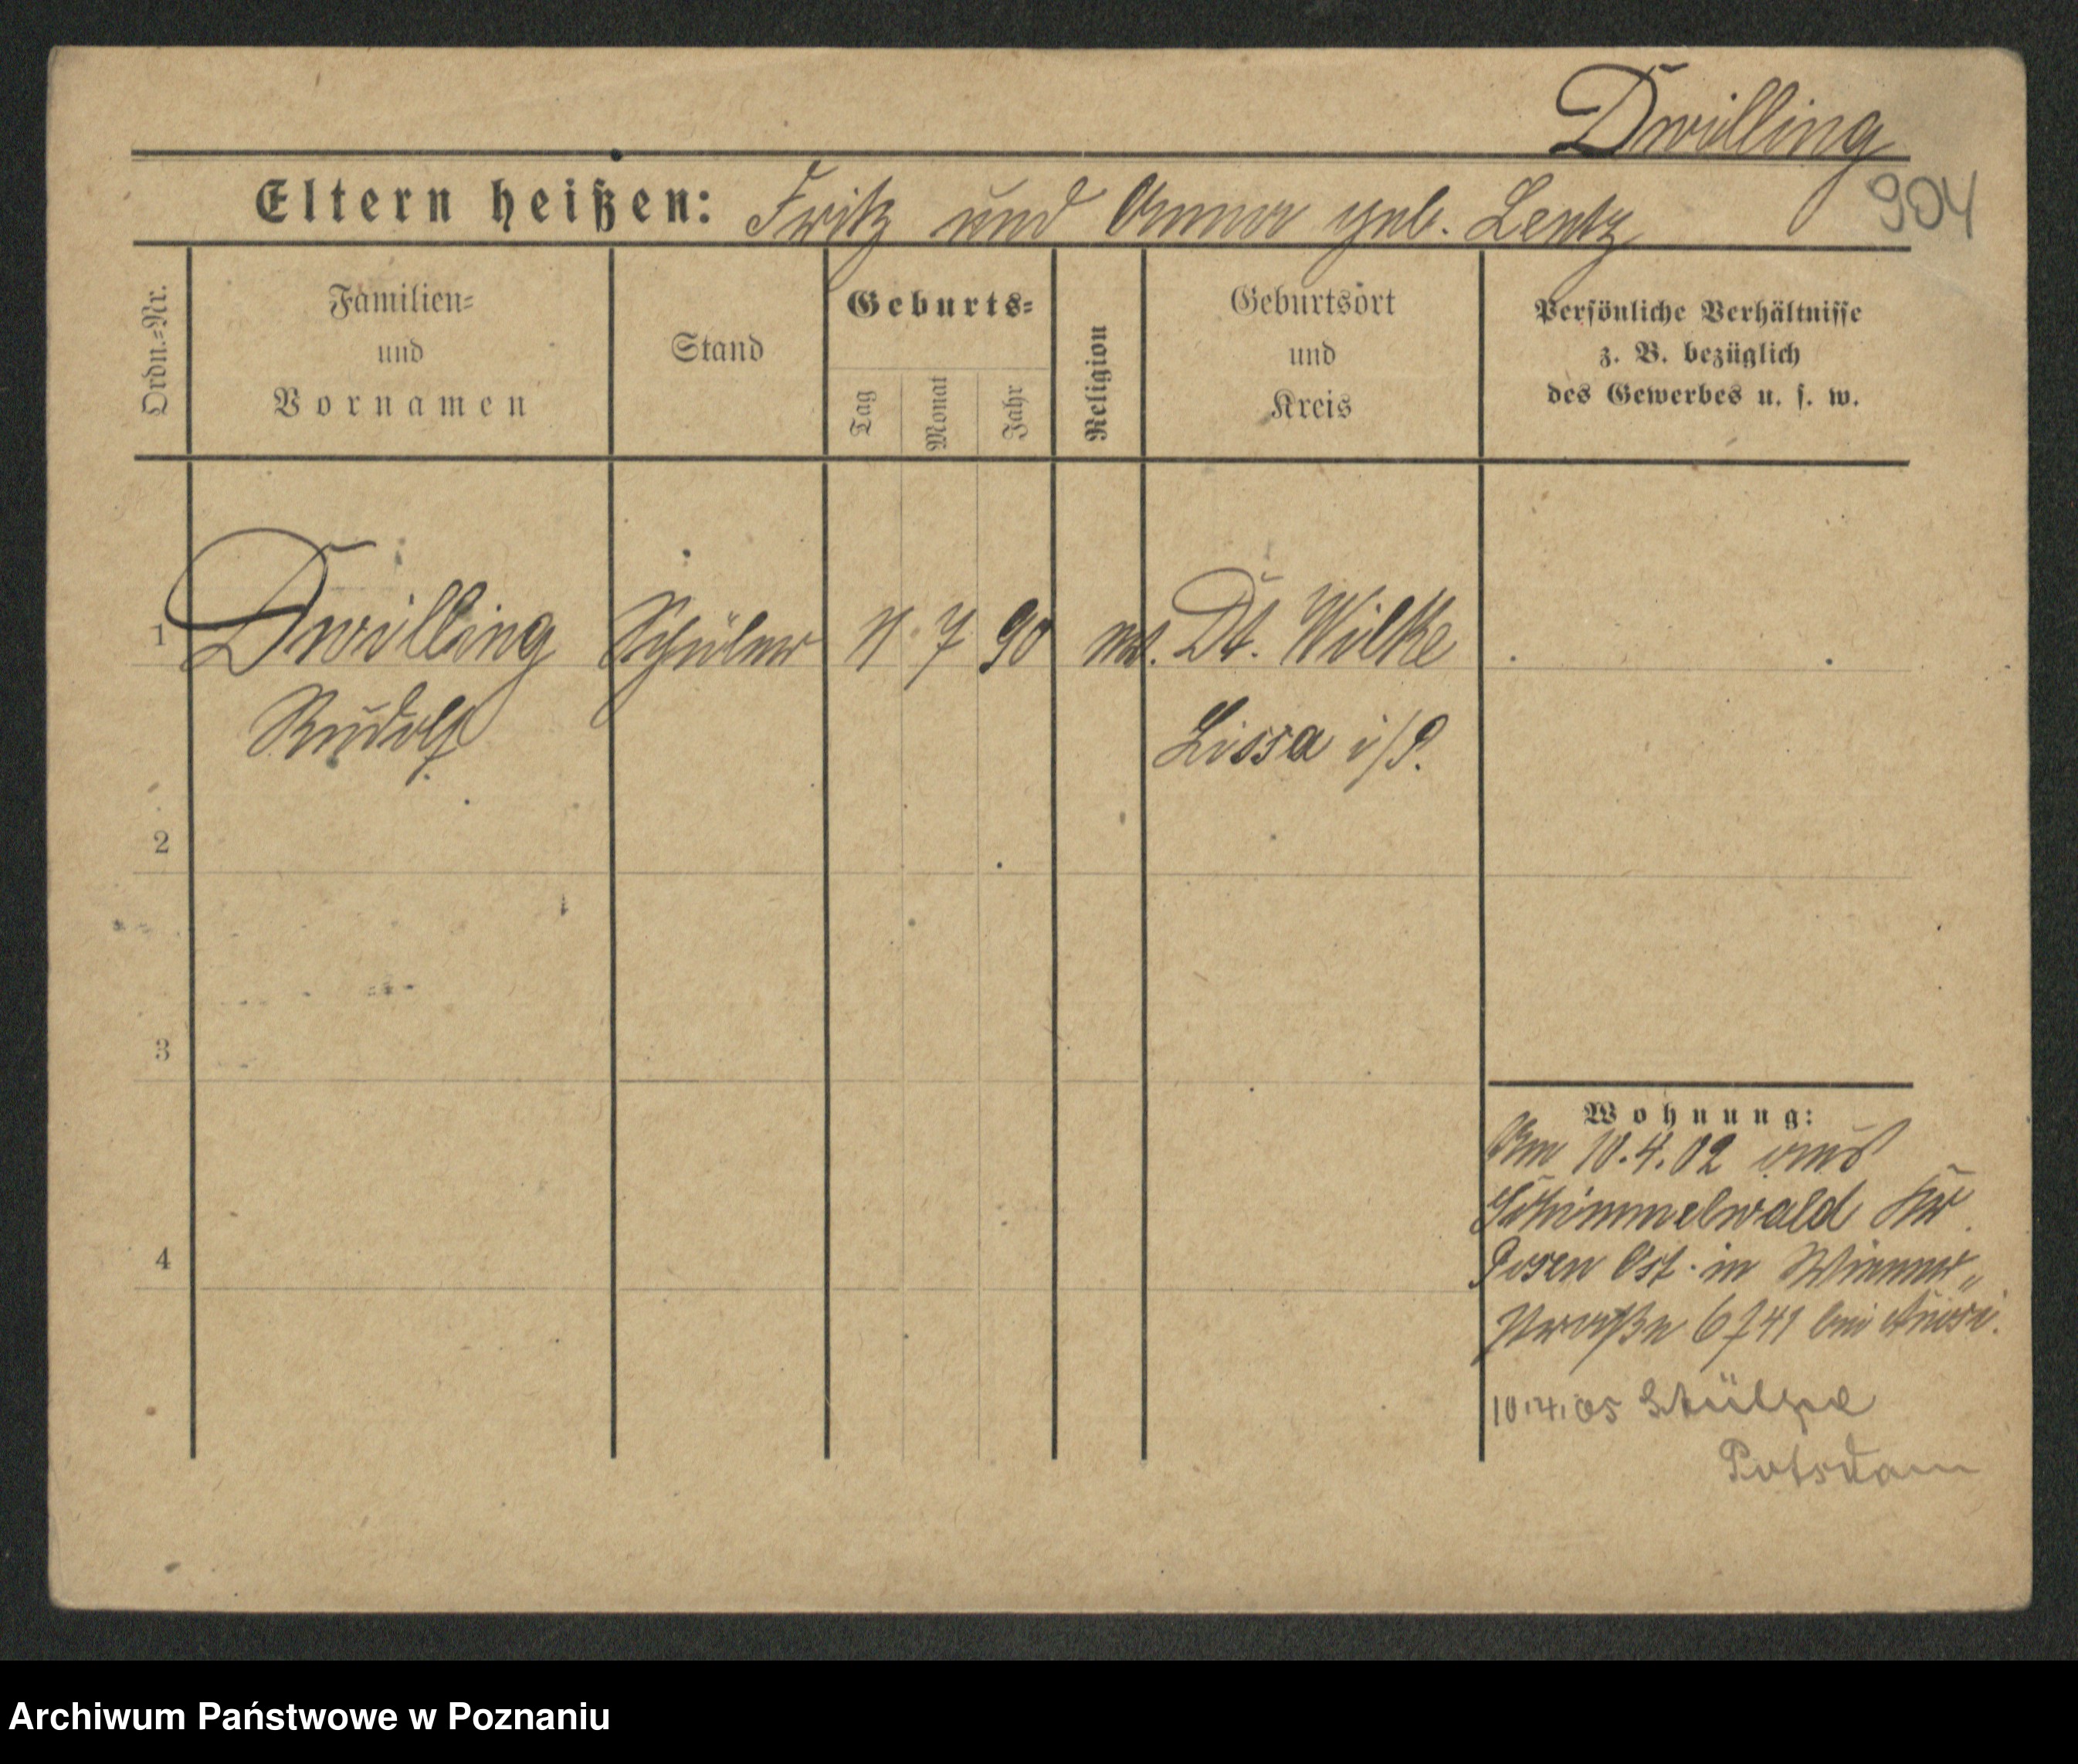 Dwilling
904
Eltern heißen: Fritz und Anna geb. Lentz
Ordn.=Nr.
Familien=
und
Vornamen
Stand
Geburts=
Tag
Monat
Jahr
Religion
Geburtsort
und
Kreis
Persönliche Verhältnisse
z. B. bezüglich
des Gewerbes u. s. w.
1 Dwilling Schüler 11 7 90 Dt. Wilke
Rudolf Lissa i/P.
2
3
4
Wohnung:
Am 10.4.02 aus
Schimmelwald Kr.
Posen Ost. in Wiener„
straße 6 bei
10.4.05
Potsdam
Archiwum Państwowe w Poznaniu